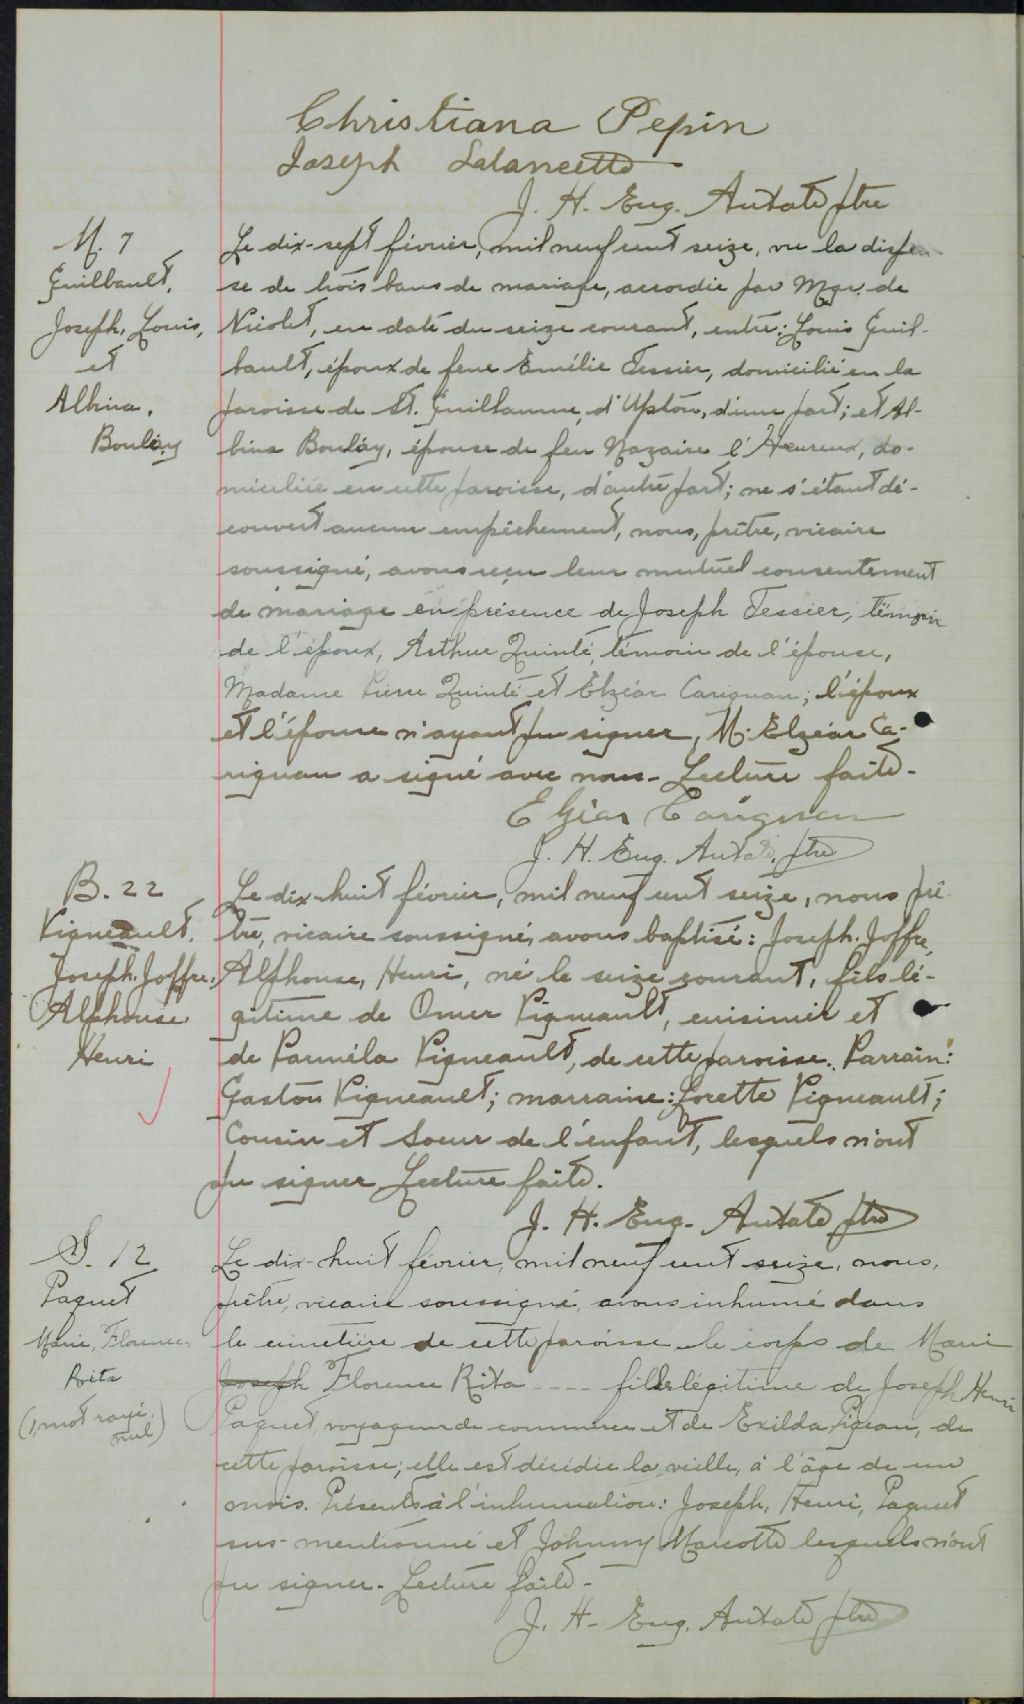 Christiana Pepin
Joseph Lalancette
J. H. Eug. Autote ptre
M. 7
Guilbault,
Joseph, Louis,
et
Albina,
Boulay
Le dix-sept février, mil neuf cent seize, vu la dispen-
se de trois bans de mariage, accordée par Mgr. de
Nicolet, en date du seize courant, entre: Louis Guil-
bault, époux de feue Emélie Tessier, domicilié en la
paroisse de St. Guillaume d'Upton, d'une part; et Al-
bina Boulay, épouse de feu Nazaire l'Heureux, do-
miciliée en cette paroisse, d'autre part; ne s'étant dé-
couvert aucun empêchement, nous, prêtre, vicaire
soussigné, avons reçu leur mutuel consentement
de mariage en présence de Joseph Tessier, témoin
de l'époux, Arthur Quinté, témoin de l'épouse,
Madame Pierre Quinté et Elzéar Carignan; l'époux
et l'épouse n'ayant pu signer, M. Elzéar Ca-
rignan a signé avec nous. Lecture faite.
Elzéar Carignan
J. H. Eug. Autote, ptre
B. 22
Vigneault,
Joseph. Joffre,
Alphonse
Henri
Le dix-huit février, mil neuf cent seize, nous prê-
tre, vicaire soussigné, avons baptisé: Joseph. Joffre,
Alphonse, Henri, né le seize courant, fils lé-
gitime de Omer Vigneault, cuisinier et
de Parméla Vigneault, de cette paroisse. Parrain:
Gaston Vigneault; marraine: Lorette Vigneault;
Cousin et Soeur de l'enfant, lesquels n'ont
pu signer. Lecture faite.
J. H. Eug. Autote ptre
S. 12
Paquet
Marie, Florence,
Rita
(1 mot rayé
nul)
Le dix-huit février, mil neuf cent seize, nous,
prêtre, vicaire soussigné, avons inhumé dans
le cimetière de cette paroisse le corps de Marie
Joseph Florence Rita ---- fille légitime de Joseph Henri
Paquet, voyageur de commerce et de Exilda Pigeau, de
cette paroisse; elle est décédée la veille, à l'âge de un
mois. Présents à l'inhumation: Joseph, Henri, Paquet
sus-mentionné et Johnny Marcotte lesquels n'ont
pu signer. Lecture faite.
J. H. Eug. Autote ptre